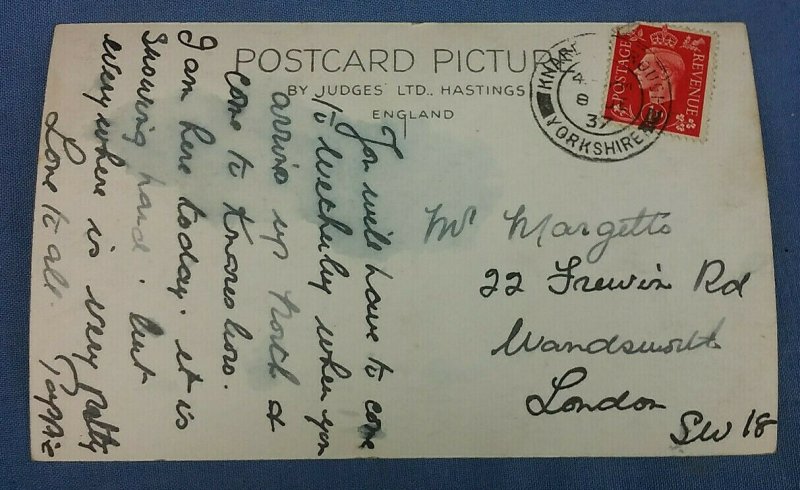 POSTCARD PICTUR
BY JUDGES' LTD., HASTINGS
ENGLAND
KNAR
8
37
YORKSHIRE
POSTAGE
REVENUE
You will have to come
to Wetherby when you
arrive up North &
come to Knaresboro.
I am here today. it is
Snowing hard. but
everywhere is very pretty
Love to all.
Mr Margetts
22 Frewin Rd
Wandsworth
London
SW 18